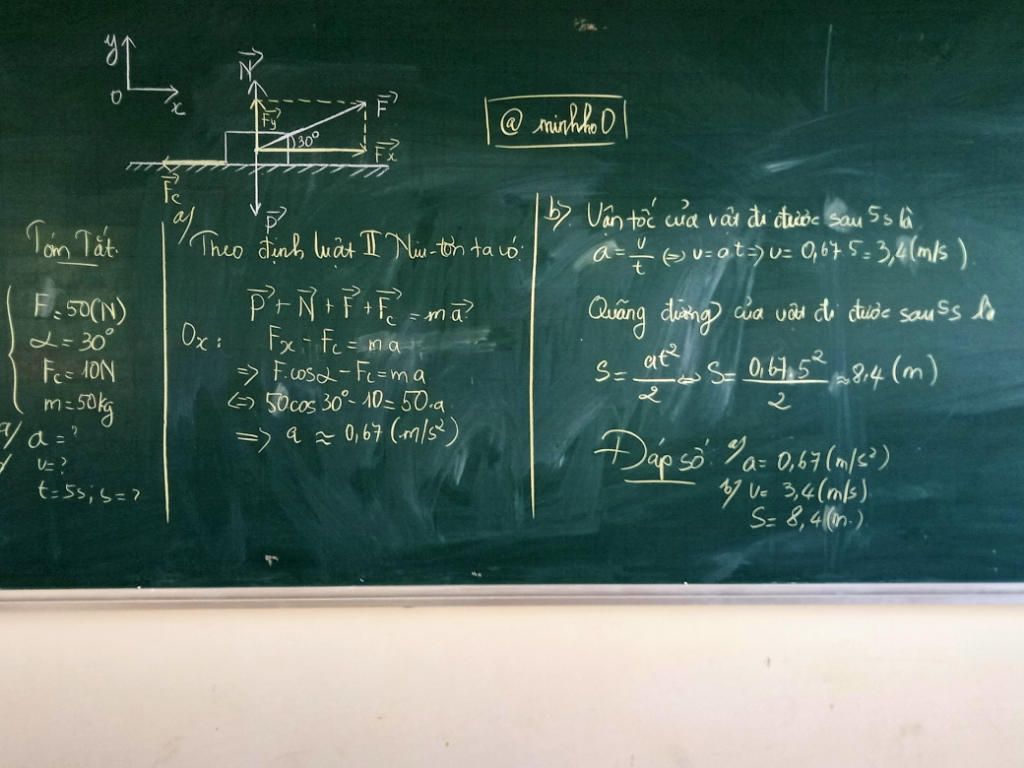 y
O x
N⃗
F⃗y
F⃗
30°
F⃗x
F⃗c
P⃗
@ minhho0
Tóm Tắt.
F = 50(N)
α = 30°
Fc = 10N
m = 50kg
a/ a = ?
v = ?
t = 5s; s = ?
a/ Theo định luật II Niu-tơn ta có:
P⃗ + N⃗ + F⃗ + F⃗c = ma⃗
Ox: Fx - Fc = ma
=> F.cosα - Fc = ma
<=> 50cos30° - 10 = 50.a
=> a ≈ 0,67 (m/s²)
b) Vận tốc của vật đi được sau 5s là
a = v/t <=> v = at => v = 0,67 5 = 3,4(m/s).
Quãng đường của vật đi được sau 5s là
S = at²/2 <=> S = 0,67.5²/2 ≈ 8,4 (m)
Đáp số: a/ a = 0,67 (m/s²)
b/ v = 3,4 (m/s)
S = 8,4 (m.)